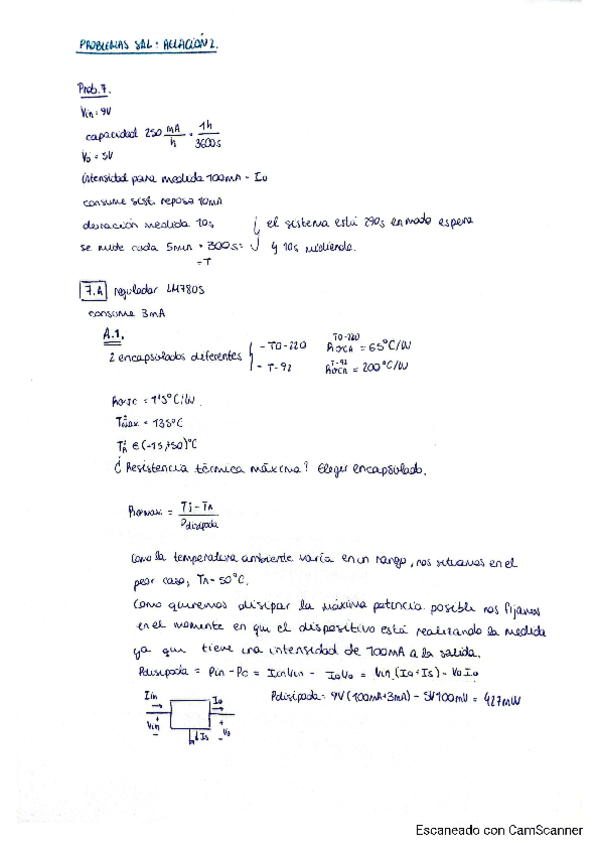 PROBLEMAS SAL: RELACIÓN 2.
Prob. 7.
Vin = 9V
capacidad 250 mA/h · 1h/3600s
Vo = 5V
intensidad para medida 100mA - Io
consume sist. reposo 10mA
duración medida 10s } el sistema está 290s en modo espera
se mide cada 5min · 300s = y 10s midiendo.
= T
7.A regulador LM7805
consume 3mA
A.1.
2 encapsulados diferentes { - TO-220 RθJCA TO-220 = 65°C/W
- T-92 RθJCA T-92 = 200°C/W
RθJC = 1'5°C/W.
Tjmax. = 135°C
TA ∈ (-15,50)°C
¿Resistencia térmica máxima? Elegir encapsulado.
Rθmax. = Tj - TA / Pdisipada
Como la temperatura ambiente varía en un rango, nos situamos en el
peor caso, TA = 50°C.
Como queremos disipar la máxima potencia posible nos fijamos
en el momento en que el dispositivo está realizando la medida
ya que tiene una intensidad de 100mA a la salida.
Pdisipada = Pin - Po = Iin Vin - Io Vo = Vin (Io + Is) - Vo Io
Pdisipada = 9V (100mA+3mA) - 5V 100mV = 427mW
Iin Io
Vin + - Is + Vo -
Escaneado con CamScanner